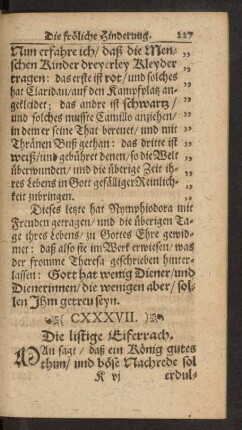 Die fröliche Hinderung. 227
Nun erfahre ich/ daß die Men-
schen Kinder dreyerley Kleyder
tragen: das erste ist rot/ und solches
hat Claridan/ auf den Kampfplatz an-
gekleidet; das andre ist schwartz/
und solches muste Camillo anziehen/
in dem er seine That bereuet/ und mit
Thränen Buß gethan: das dritte ist
weiß/ und gebühret denen/ so die Welt
überwunden/ und die übrige Zeit ih-
res Lebens in Gott gefälliger Reinlich-
keit zubringen.
Dieses letzte hat Nymphidora mit
Freuden getragen/ und die überigen Ta-
ge ihres Lebens/ in Gottes Ehre gewid-
met: daß also sie im Werk erwiesen/ was
der fromme Theresa geschrieben hinter-
lassen: Gott hat wenig Diener/ und
Dienerinnen/ die wenigen aber/ sol-
len Jhm getreu seyn.
(CXXXVII.)
Die listige Eiferrach.
MAn sagt/ daß ein König gutes
thun/ und böse Nachrede sol
K vj erdul-